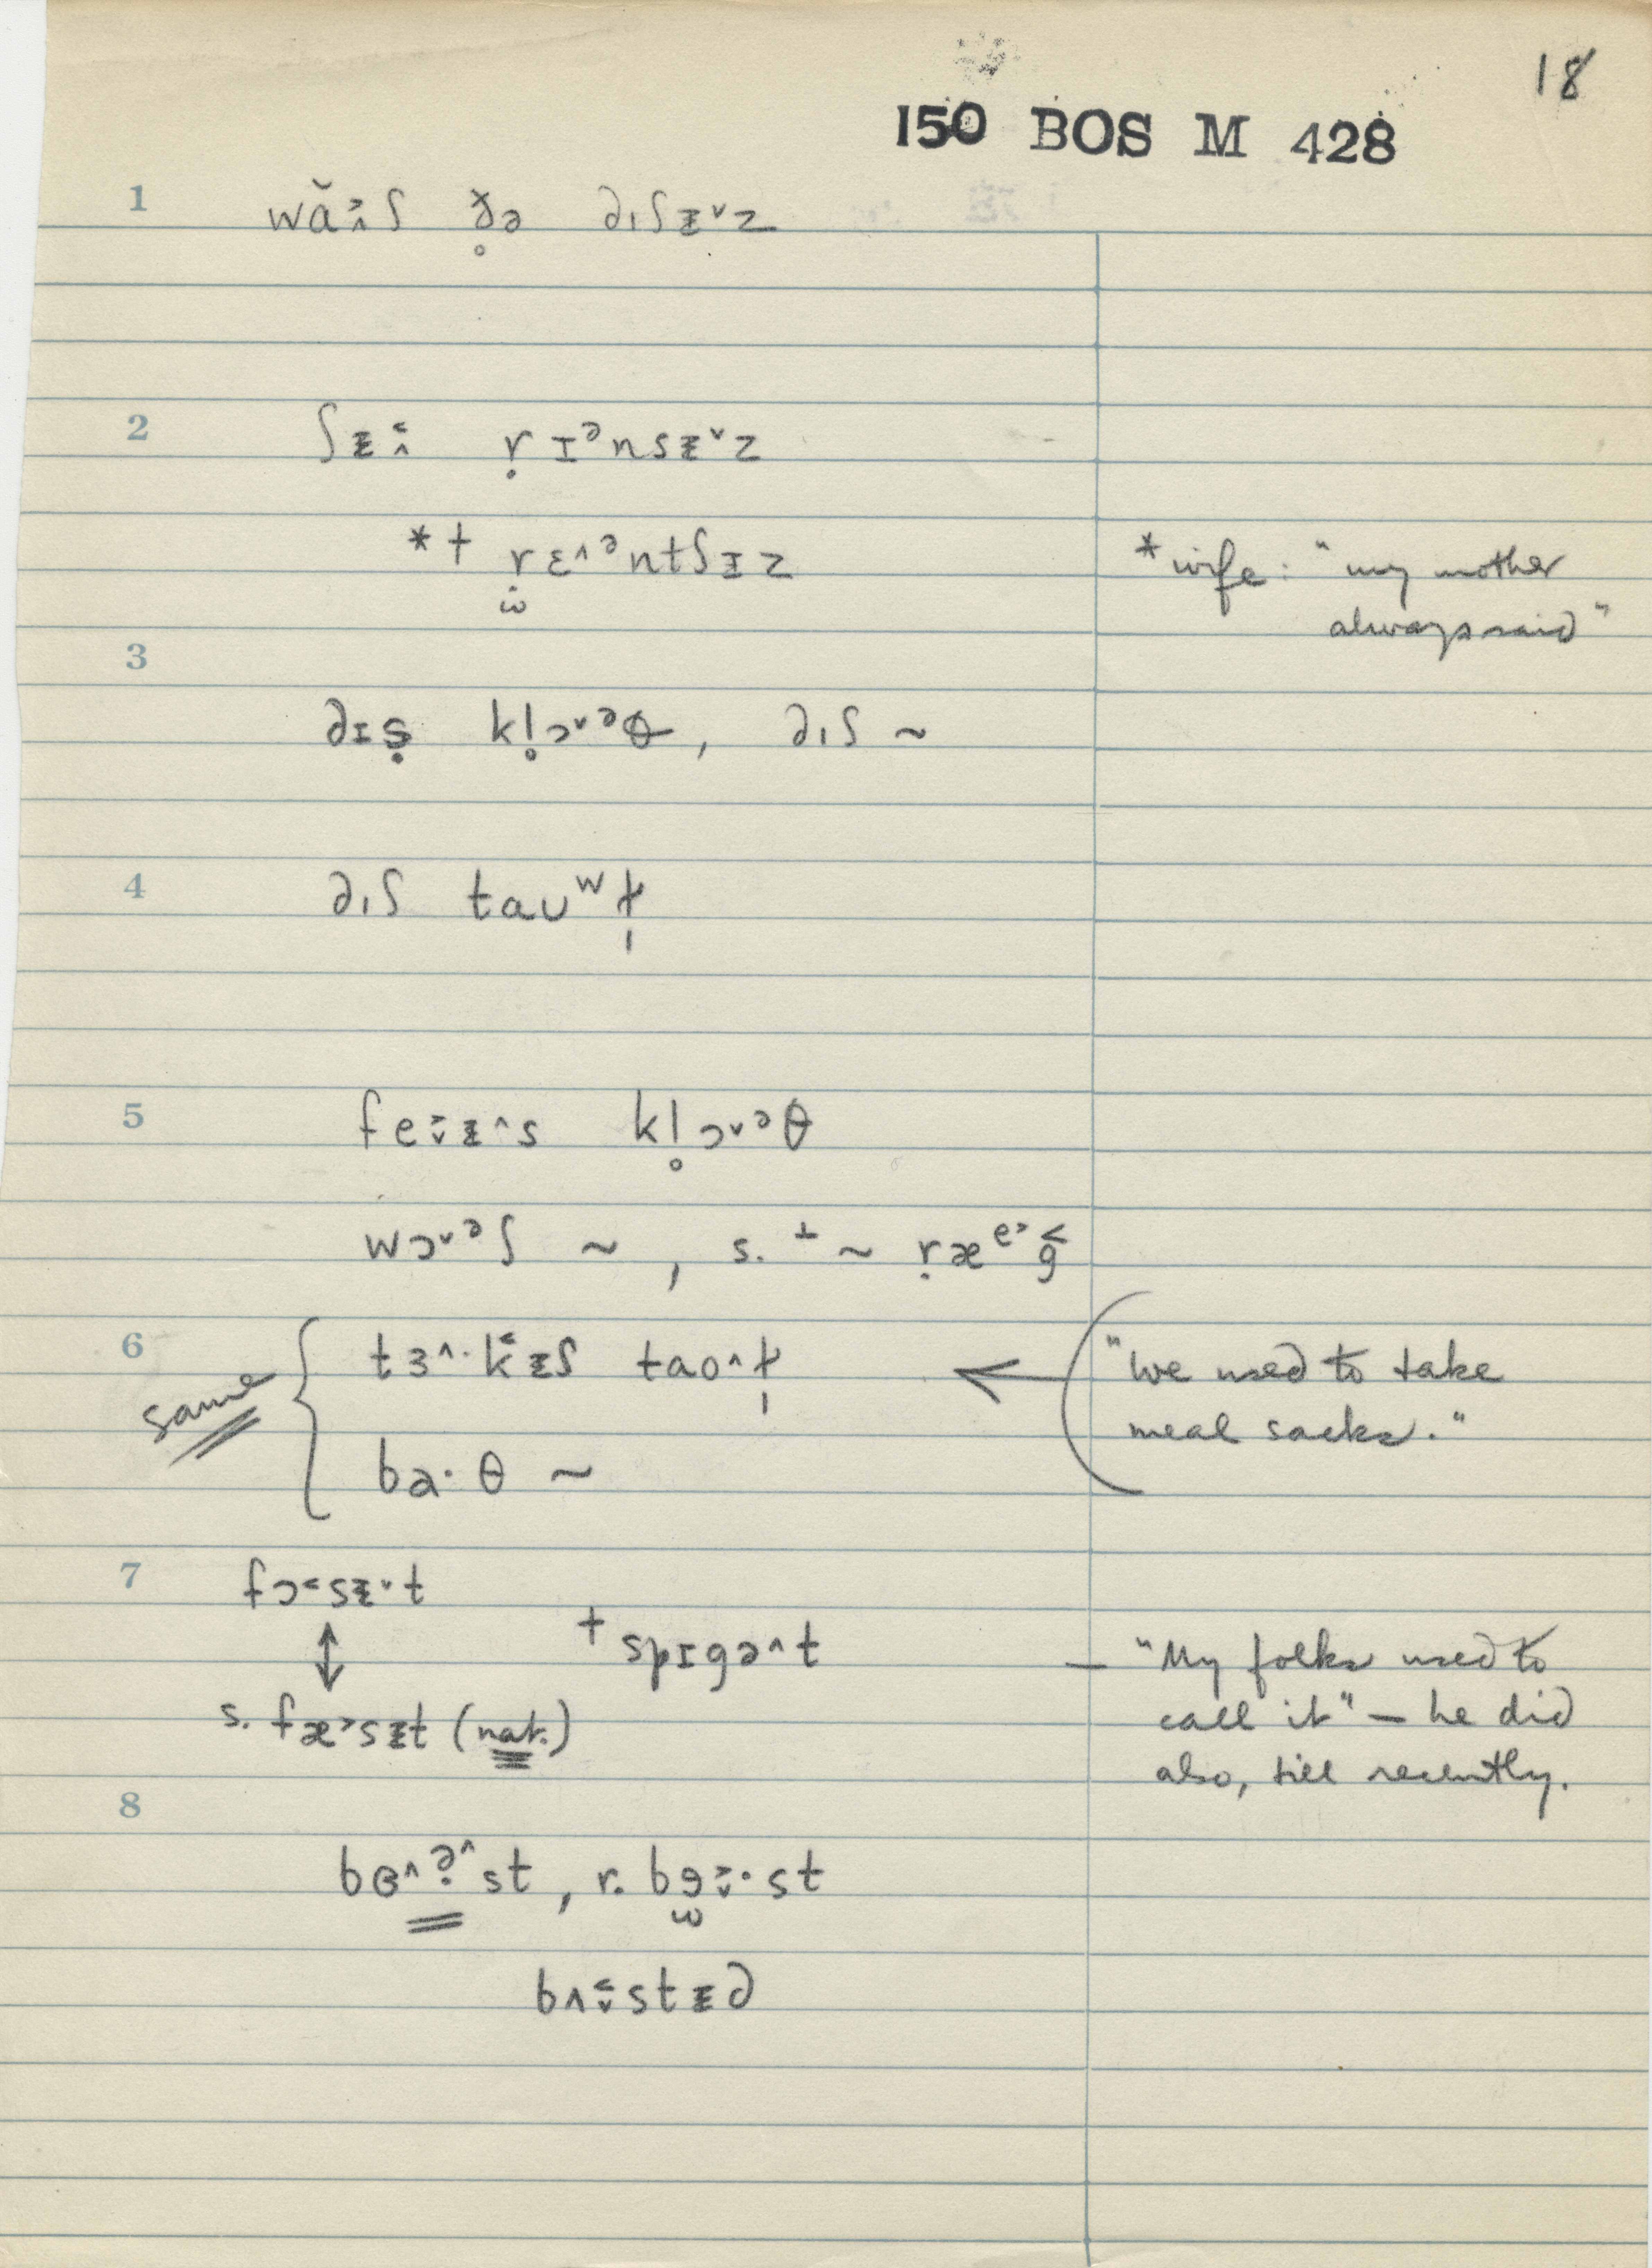 18
150 BOS M 428
1 wă᷾ɪʃ ð̥ə dɪʃᵻ˅z
2 ʃᵻ ṛɪᵊnsᵻ˅z
*† ṛɛ˄ᵊntʃɪz
*wife: "my mother
always said"
3
dɪṣ kl̥ɔ˅ᵊθ, dɪʃ ~
4 dɪʃ taʊʷɫ̩
5 fe᷾ᵻ˄s kl̥ɔ˅ᵊθ
wɔ˅ᵊʃ ~, s. ⊥ ~ ṛæᵉ˃ğ
6 tɜ˄·k̆ᵻʃ tao˄ɫ̩
same
ba·θ ~
"We used to take
meal sacks."
7 fɔ˂sᵻ˅t
† spɪgə˄t
s. fæ˃sᵻt (nat.)
— "My folks used to
call it" — he did
also, till recently.
8
bɞ˄ᵊ˄st, r. bɘ·st
bʌstᵻd